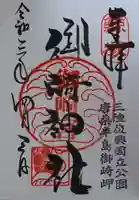 奉拝
三陸復興国立公園
唐桑半島御崎岬
御崎神社
令和 年 月 日